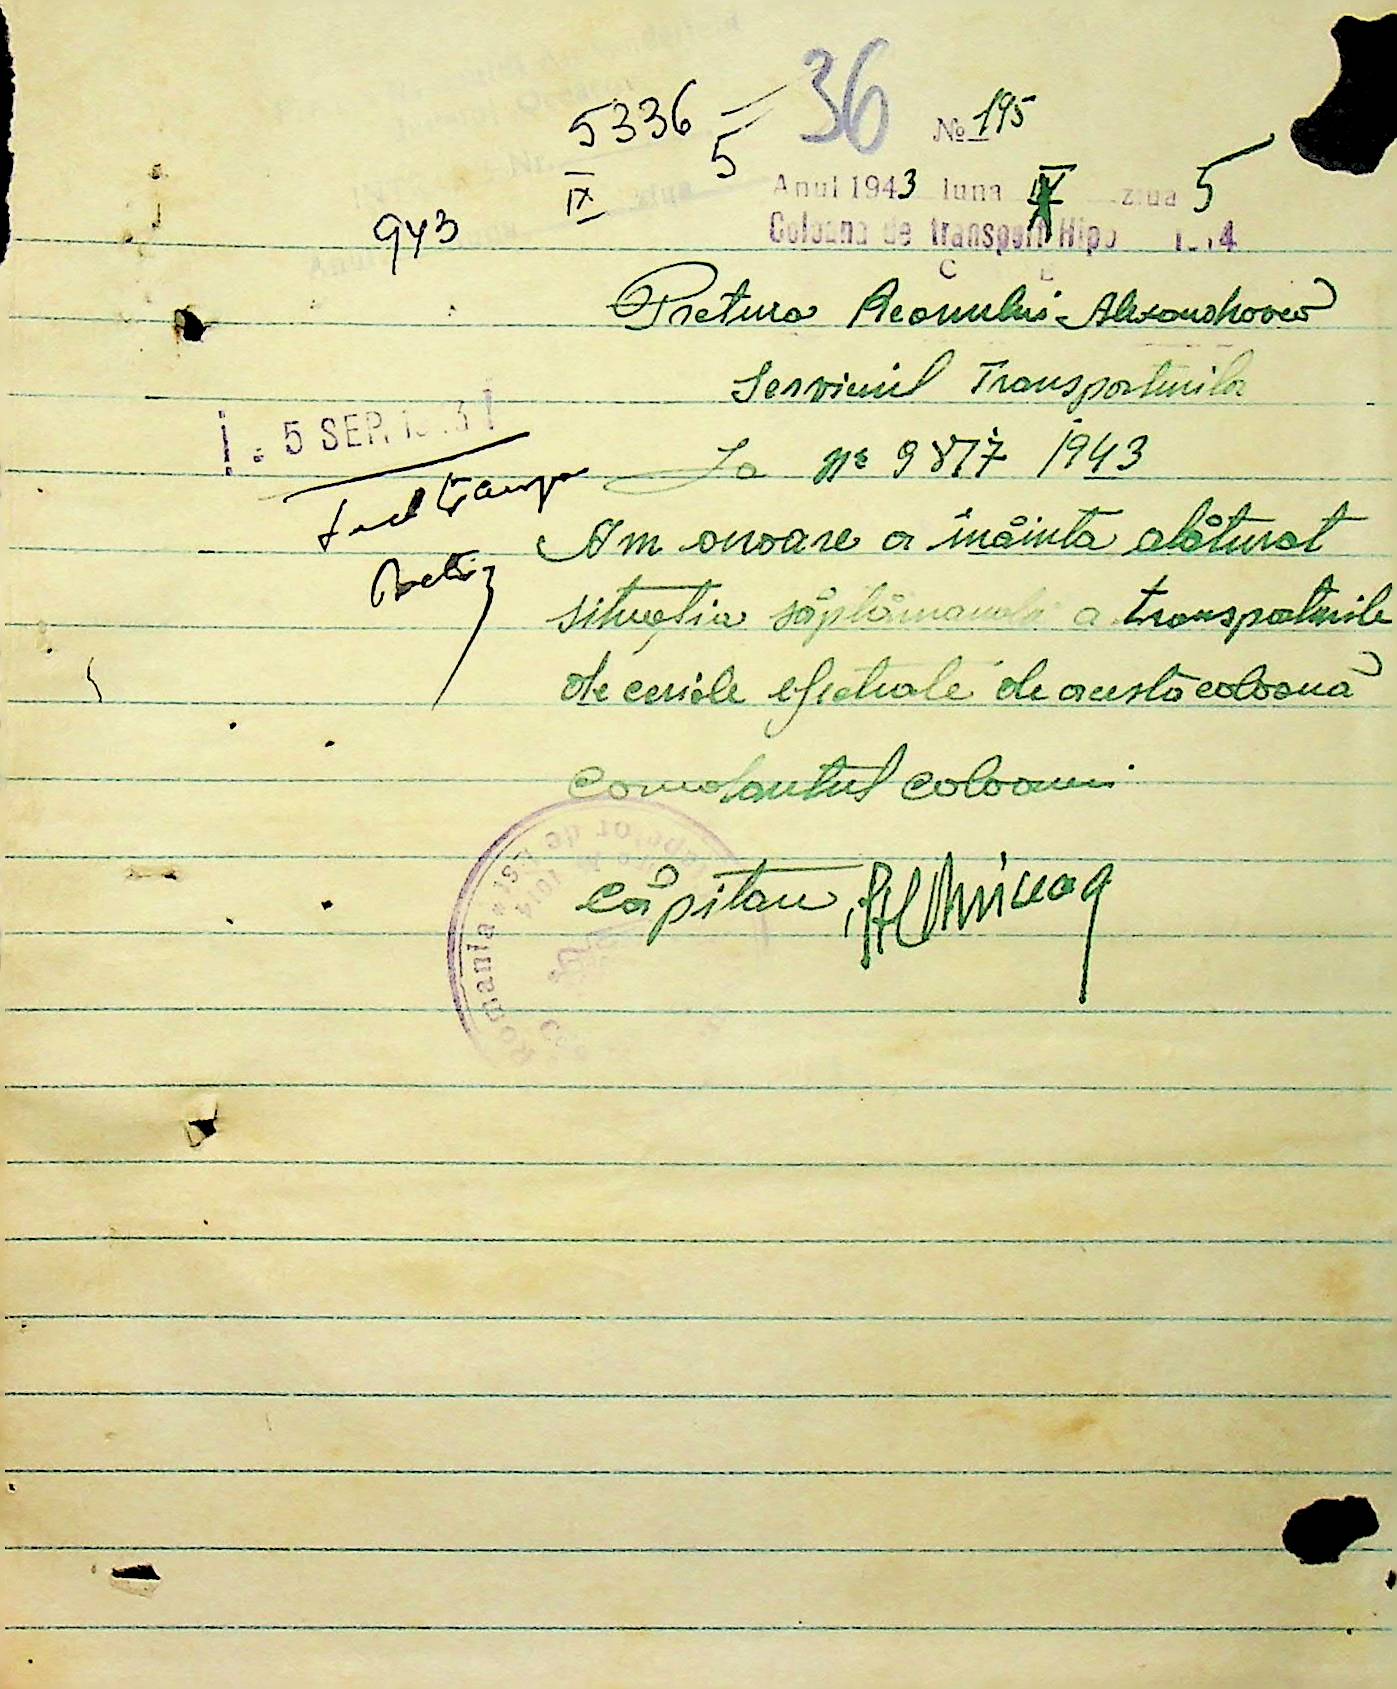 36
5336 5
IX
943
№ 195
Anul 1943 luna IX ziua 5
Coloana de transport Hipo
Pretura Reonului Alexandrovca
Serviciul Transporturila
La № 9877 1943
Am onoare a înăinta alăturat
situația săptămanala a transporturile
de ceriale efectuate de acestă coloană
Comdantul coloanei
Căpitan
- 5 SEP. 1943
Romania